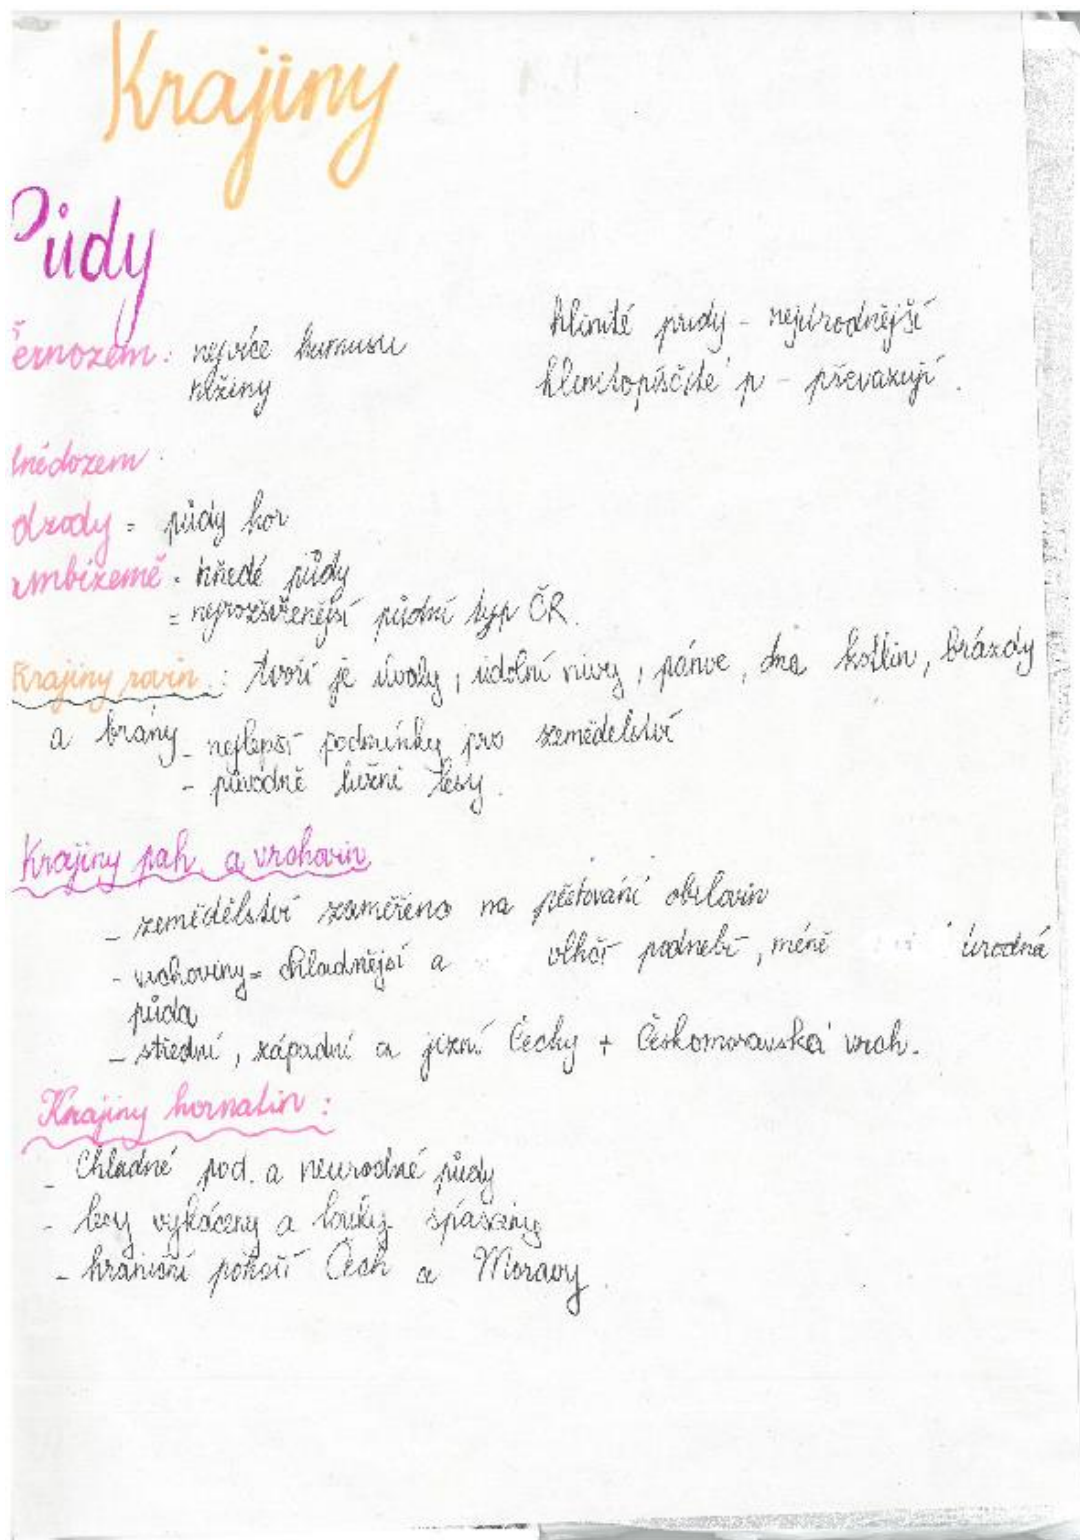 Krajiny
Půdy
ernozem: nejvíce humusu
nížiny
hlinité půdy - nejúrodnější
hlinitopísčité p - převazují.
hnědozem:
dzody = půdy hor
ambizemě = hnědé půdy
= nejrozšířenější půdní typ ČR.
Krajiny rovin: tvoří je úvaly, údolní nivy, pánve, dna kotlin, brázdy
a brány - nejlepší podmínky pro zemědělství
- původně lužní lesy.
Krajiny pah. a vrchovin
- zemědělství zaměřeno na pěstování obilovin
- vrchoviny = chladnější a vlhčí podnebí, méně úrodná
půda
- střední, západní a jizní Čechy + Českomoravská vrch.
Krajiny hornatin:
- Chladné pod. a neurodné půdy
- lesy vykáceny a louky spaseny
- hraniční pohoří Čech a Moravy.